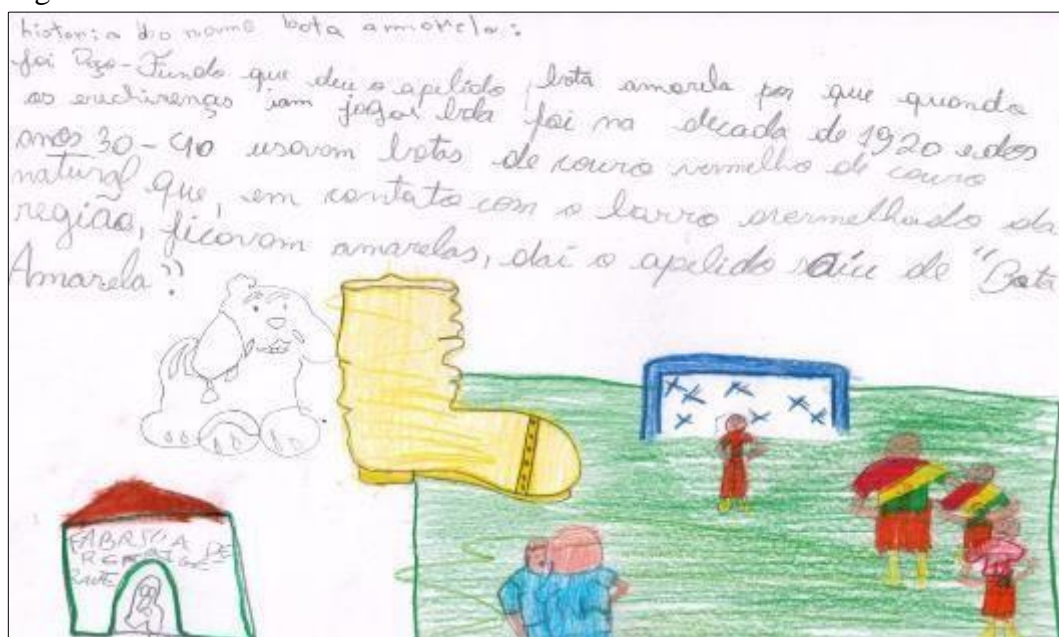 historia do nome bota amarela:
foi Poço-Fundo que deu o apelido, bota amarela por que quando
os erechirenças iam jogar bola foi na decada de 1920 e dos
anos 30-40 usavam botas de couro vermelho de couro
natural que, em contato com o barro avermelhado da
região, ficavam amarelas, daí o apelido saiu de "Bota
Amarela"
FABRICA DE
REFRIGE
RANTE